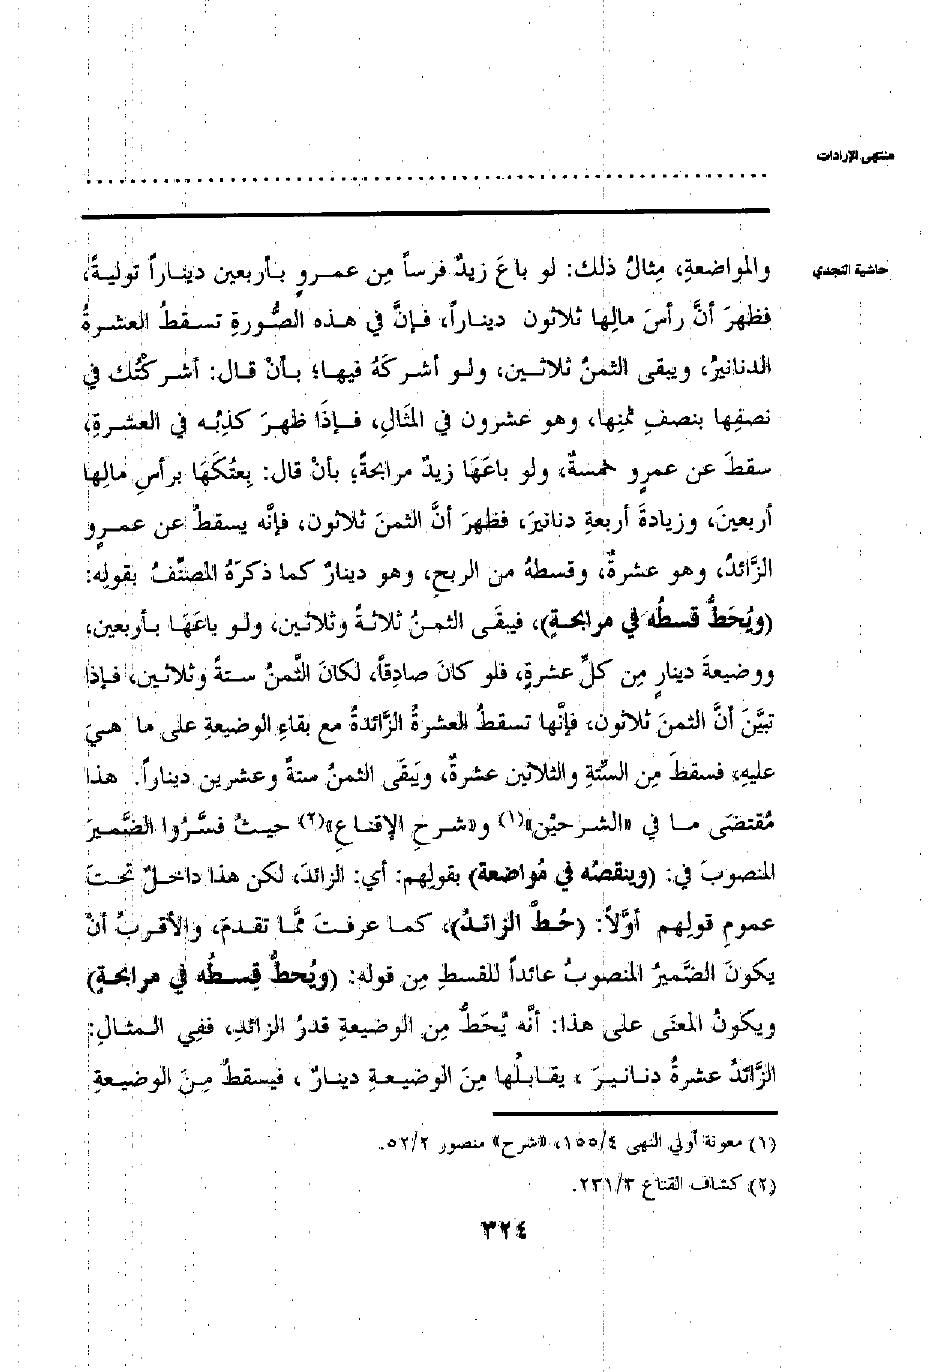 منتهى الإرادات
حاشية النجدي
والمواضعةِ، مِثالُ ذلك: لو باعَ زيدٌ فرساً مِن عمرٍو بأربعين ديناراً توليةً،
فظهرَ أنَّ رأسَ مالِها ثلاثون ديناراً، فإنَّ في هذه الصُّورةِ تسقطُ العشرةُ
الدنانيرُ، ويبقى الثمنُ ثلاثين، ولو أشركَهُ فيها؛ بأنْ قال: أشركتُك في
نصفِها بنصفِ ثمنِها، وهو عشرون في المثَالِ، فإذَا ظهرَ كذبُه في العشرةِ،
سقطَ عن عمرٍو خمسةٌ، ولو باعَهَا زيدٌ مرابحةً؛ بأنْ قال: بِعتُكَهَا برأسِ مالِها
أربعينَ، وزيادةَ أربعةِ دنانيرَ، فظهرَ أنَّ الثمنَ ثلاثون، فإنَّه يسقطُ عن عمرٍو
الزَّائدُ، وهو عشرةٌ، وقسطهُ من الربحِ، وهو دينارٌ كما ذكرَهُ المصنِّفُ بقولِه:
(ويُحَطُّ قسطُه في مرابحةٍ)، فيبقَى الثمنُ ثلاثةً وثلاثين، ولو باعَهَا بأربعين،
ووضيعةَ دينارٍ مِن كلِّ عشرةٍ، فلو كانَ صادِقاً، لكانَ الثَّمنُ ستةً وثلاثين، فإذا
تبيَّنَ أنَّ الثمنَ ثلاثون، فإنَّها تسقطُ العشرةُ الزَّائدةُ مع بقاءِ الوضيعةِ على ما هيَ
عليهِ، فسقطَ مِن السِّتَّةِ والثلاثين عشرةٌ، ويَبقَى الثمنُ ستةً وعشرين ديناراً. هذا
مُقتضَى ما في «الشرحيْن»(١) و«شرحِ الإقناعِ»(٢) حيثُ فسَّرُوا الضَّميرَ
المنصوبَ في: (وينقصُه في مُواضعة) بقولِهم: أي: الزائدَ، لكن هذا داخلٌ تحتَ
عمومِ قولِهم أوَّلاً: (حُطَّ الزائدُ)، كما عرفتَ ممَّا تقدمَ، والأقربُ أنْ
يكونَ الضَّميرُ المنصوبُ عائداً للقسطِ مِن قوله: (ويُحطُّ قِسطُه في مرابحةٍ)
ويكونُ المعنَى على هذا: أنَّه يُحَطُّ مِن الوضيعةِ قدرُ الزائدِ، ففِي المثالِ:
الزَّائدُ عشرةُ دنانيرَ، يقابلُها مِنَ الوضيعةِ دينارٌ، فيسقطُ مِنَ الوضيعةِ
(١) معونة أولي النهى ٤/ ١٥٥، «شرح» منصور ٢/ ٥٢.
(٢) كشاف القناع ٣/ ٢٣١.
٣٢٤